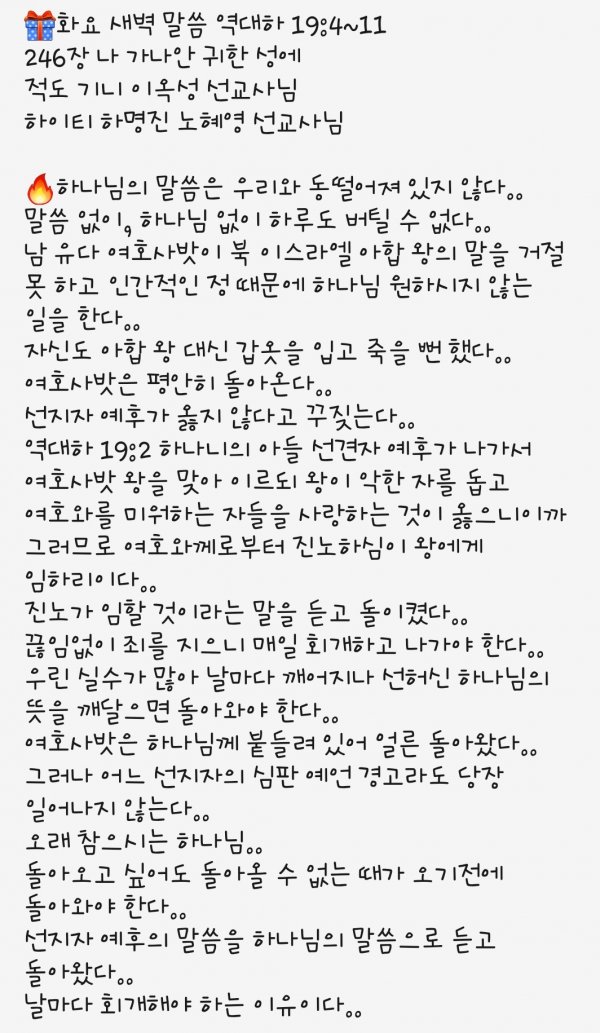 🎁화요 새벽 말씀 역대하 19:4~11
246장 나 가나안 귀한 성에
적도 기니 이옥성 선교사님
하이티 하명진 노혜영 선교사님
🔥하나님의 말씀은 우리와 동떨어져 있지 않다..
말씀 없이, 하나님 없이 하루도 버틸 수 없다..
남 유다 여호사밧이 북 이스라엘 아합 왕의 말을 거절
못 하고 인간적인 정 때문에 하나님 원하시지 않는
일을 한다..
자신도 아합 왕 대신 갑옷을 입고 죽을 뻔 했다..
여호사밧은 평안히 돌아온다..
선지자 예후가 옳지 않다고 꾸짖는다..
역대하 19:2 하나니의 아들 선견자 예후가 나가서
여호사밧 왕을 맞아 이르되 왕이 악한 자를 돕고
여호와를 미워하는 자들을 사랑하는 것이 옳으니이까
그러므로 여호와께로부터 진노하심이 왕에게
임하리이다..
진노가 임할 것이라는 말을 듣고 돌이켰다..
끊임없이 죄를 지으니 매일 회개하고 나가야 한다..
우린 실수가 많아 날마다 깨어지나 선허신 하나님의
뜻을 깨달으면 돌아와야 한다..
여호사밧은 하나님께 붙들려 있어 얼른 돌아왔다..
그러나 어느 선지자의 심판 예언 경고라도 당장
일어나지 않는다..
오래 참으시는 하나님..
돌아오고 싶어도 돌아올 수 없는 때가 오기전에
돌아와야 한다..
선지자 예후의 말씀을 하나님의 말씀으로 듣고
돌아왔다..
날마다 회개해야 하는 이유이다..